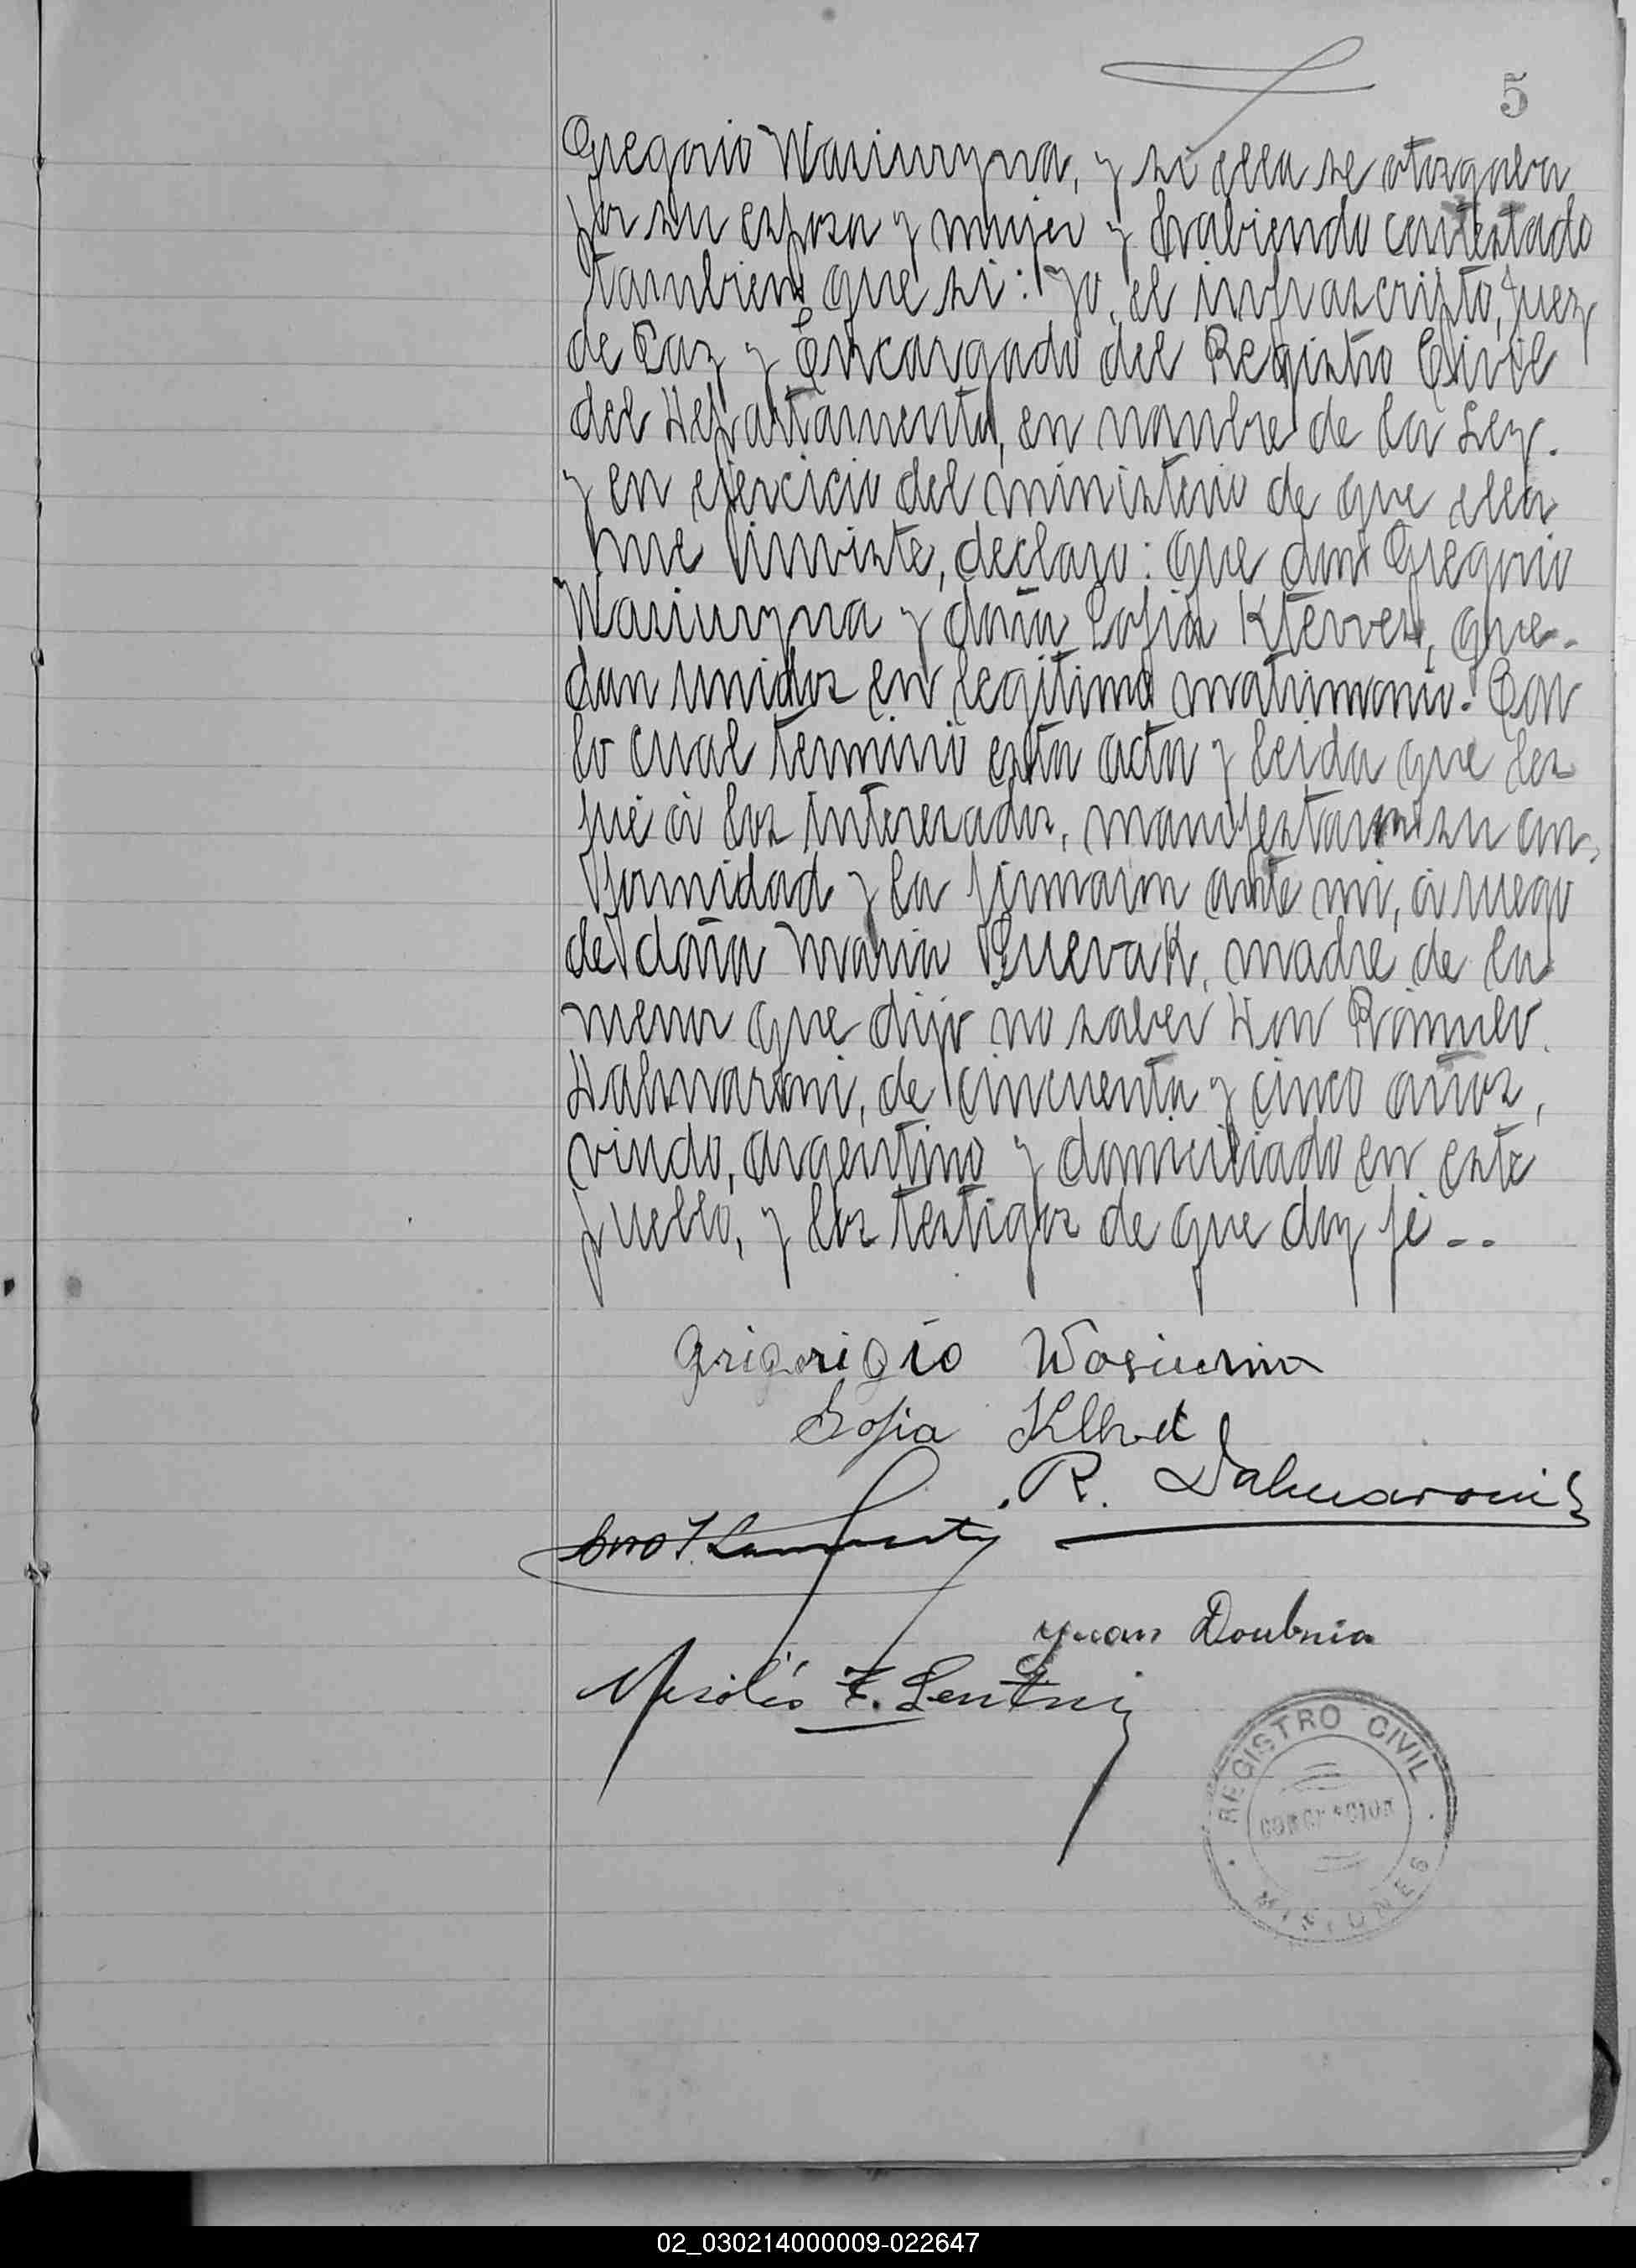 5
Gregorio Wasiuryna, y si ella se otorgaba
por su esposa y mujer y habiendo contestado
tambien que si: Yo, el infrascripto, Juez
de Paz y Encargado del Registro Civil
del Departamento, en nombre de la Ley.
y en ejercicio del ministerio de que ella
me inviste, declaro: que don Gregorio
Wasiuryna y doña Sofia que-
dan unidos en legitimo matrimonio. Con
lo cual terminó esta acta y leida que les
fué á los interesados, manifestaron su con-
formidad y la firmaron ante mi, á ruego
de doña Maria madre de la
menor que dijo no saber Don Rómulo
Dalmaroni, de cincuenta y cinco años,
viudo, argentino y domiciliado en este
pueblo, y los testigos de que doy fé --
Wosiurina
Sofia
R. Dalmaroni
Juan Doubnia
REGISTRO CIVIL
CONCEPCION
MISIONES
02_030214000009-022647